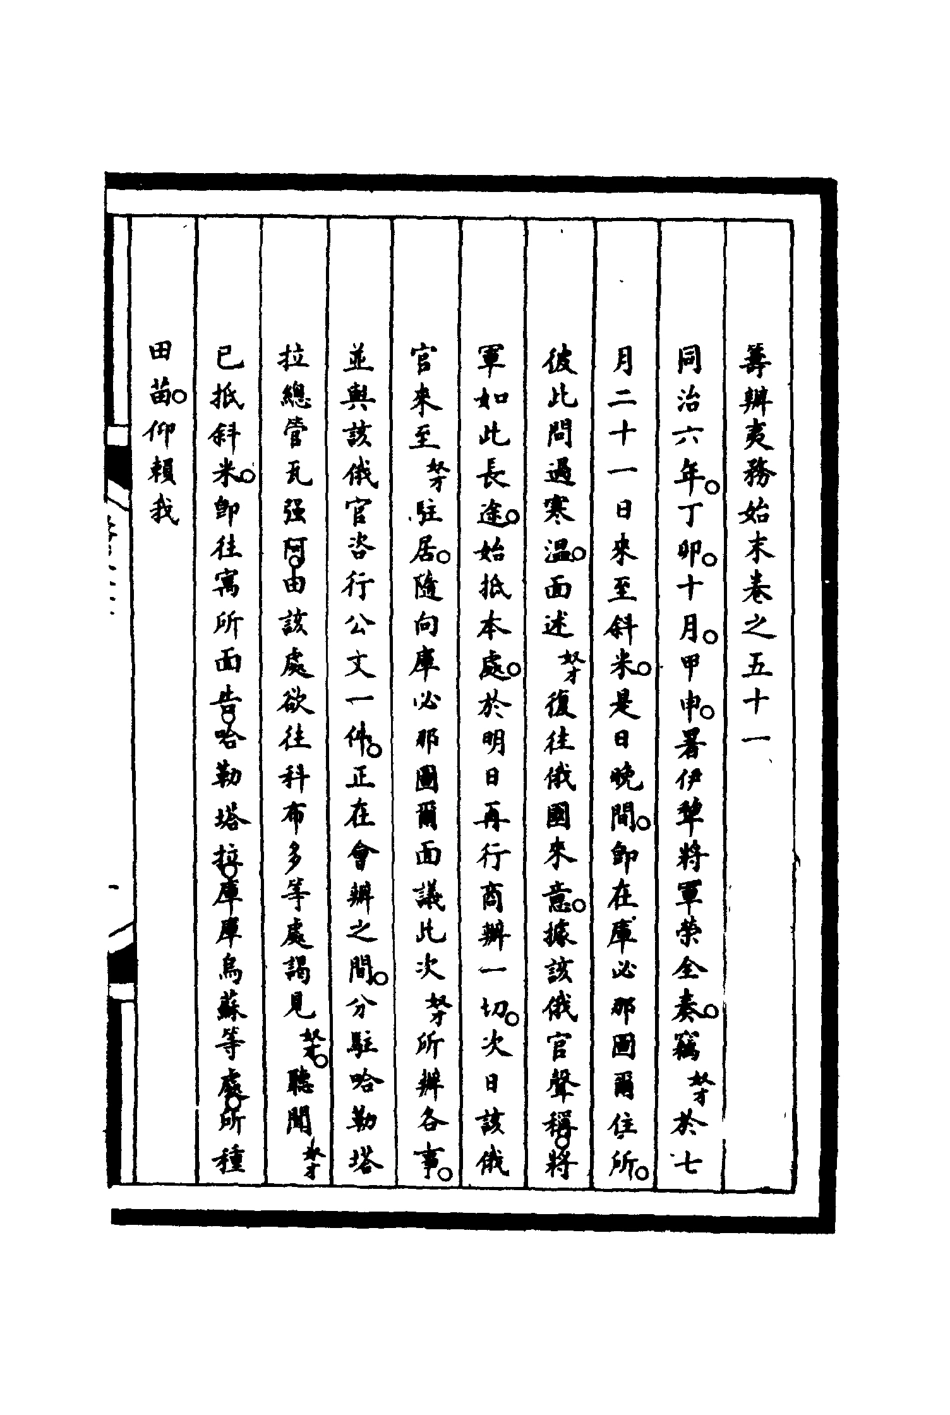 籌辦夷務始末卷之五十一
同治六年。丁卯。十月。甲申。署伊犂將軍榮全奏。竊奴才於七
月二十一日來至斜米。是日晚間。卽在庫必那圖爾住所。
彼此問過寒溫。面述奴才復往俄國來意。據該俄官聲稱。將
軍如此長途。始抵本處。於明日再行商辦一切。次日該俄
官來至奴才駐居。隨向庫必那圖爾面議此次奴才所辦各事。
並與該俄官咨行公文一件。正在會辦之間。分駐哈勒塔
拉總管瓦强阿。由該處欲往科布多等處謁見奴才。聽聞奴才
已抵斜米。卽往寓所面告。哈勒塔拉。庫庫烏蘇等處。所種
田苗。仰賴我